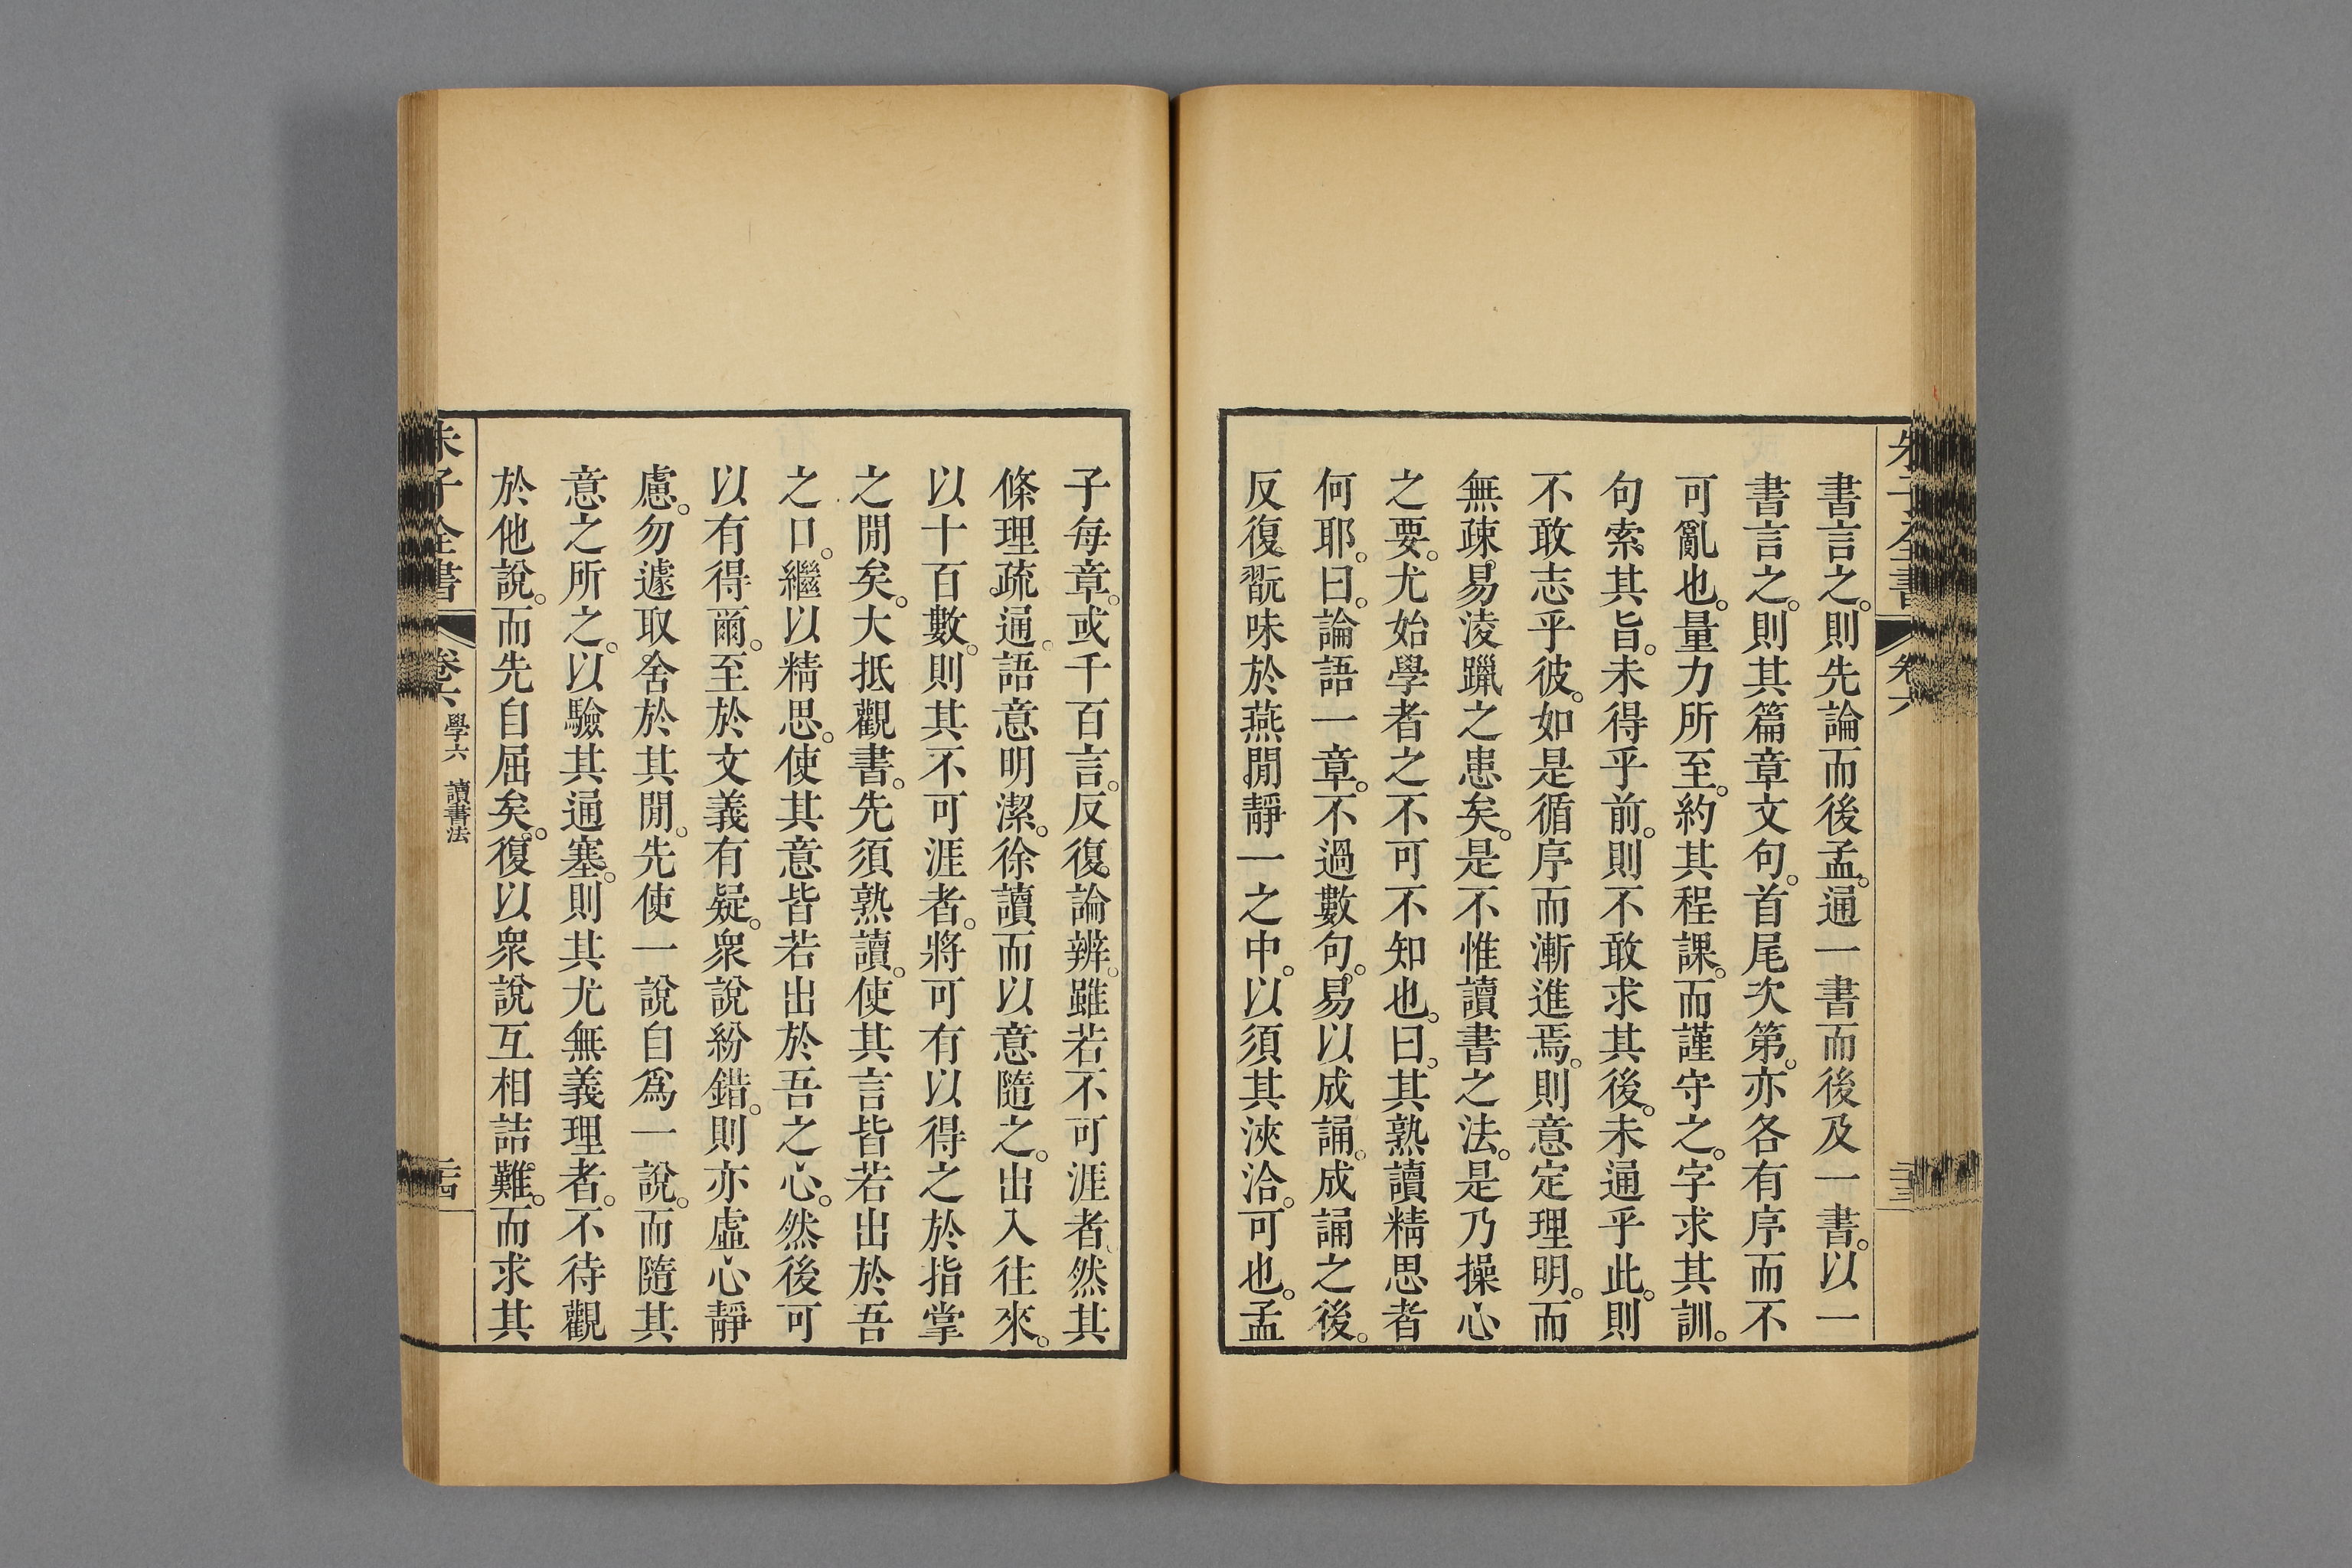 書言之。則先論而後孟。通一書而後及一書。以一
書言之。則其篇章文句。首尾次第。亦各有序而不
可亂也。量力所至。約其程課。而謹守之。字求其訓。
句索其旨。未得乎前。則不敢求其後。未通乎此。則
不敢志乎彼。如是循序而漸進焉。則意定理明。而
無疎易淩躐之患矣。是不惟讀書之法。是乃操心
之要。尤始學者之不可不知也。曰。其熟讀精思者
何耶。曰。論語一章。不過數句。易以成誦。成誦之後。
反復翫味於燕閒靜一之中。以須其浹洽。可也。孟
子每章。或千百言。反復論辨。雖若不可涯者、然其
條理疏通。語意明潔。徐讀而以意隨之。出入往來。
以十百數。則其不可涯者。將可有以得之於指掌
之閒矣。大抵觀書。先須熟讀。使其言皆若出於吾
之口。繼以精思。使其意皆若出於吾之心。然後可
以有得爾。至於文義有疑。衆說紛錯。則亦虛心靜
慮。勿遽取舍於其閒。先使一說自爲一說。而隨其
意之所之。以驗其通塞。則其尤無義理者。不待觀
於他說。而先自屈矣。復以衆說互相詰難。而求其
朱子全書 卷六 學六 讀書法